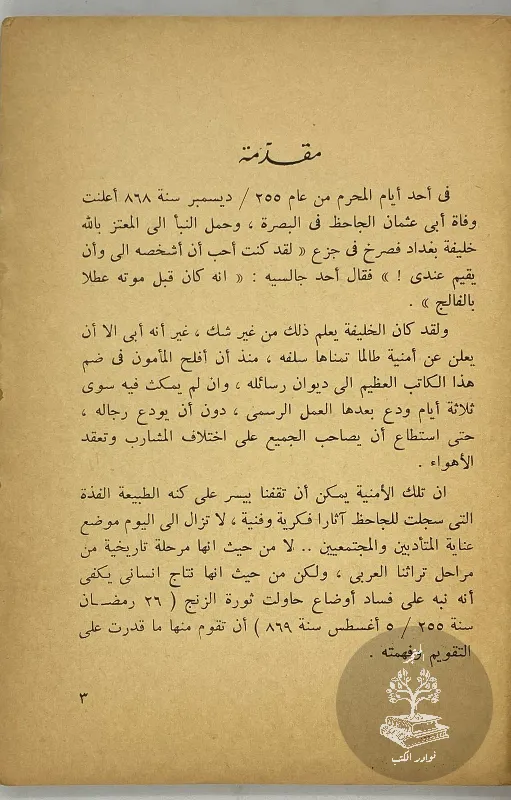 مقدمة
فى أحد أيام المحرم من عام ٢٥٥ / ديسمبر سنة ٨٦٨ أعلنت
وفاة أبى عثمان الجاحظ فى البصرة ، وحمل النبأ الى المعتز بالله
خليفة بغداد فصرخ فى جزع « لقد كنت أحب أن أشخصه الى وأن
يقيم عندى ! » فقال أحد جالسيه : « انه كان قبل موته عطلا
بالفالج » .
ولقد كان الخليفة يعلم ذلك من غير شك ، غير أنه أبى الا أن
يعلن عن أمنية طالما تمناها سلفه ، منذ أن أفلح المأمون فى ضم
هذا الكاتب العظيم الى ديوان رسائله ، وان لم يمكث فيه سوى
ثلاثة أيام ودع بعدها العمل الرسمى ، دون أن يودع رجاله ،
حتى استطاع أن يصاحب الجميع على اختلاف المشارب وتعقد
الأهواء .
ان تلك الأمنية يمكن أن تقفنا بيسر على كنه الطبيعة الفذة
التى سجلت للجاحظ آثارا فكرية وفنية ، لا تزال الى اليوم موضع
عناية المتأدبين والمجتمعيين .. لا من حيث انها مرحلة تاريخية من
مراحل تراثنا العربى ، ولكن من حيث انها نتاج انسانى يكفى
أنه نبه على فساد أوضاع حاولت ثورة الزنج ( ٢٦ رمضـــان
سنة ٢٥٥ / ٥ أغسطس سنة ٨٦٩ ) أن تقوم منها ما قدرت على
التقويم وفهمته .
٣
نوادر الكتب